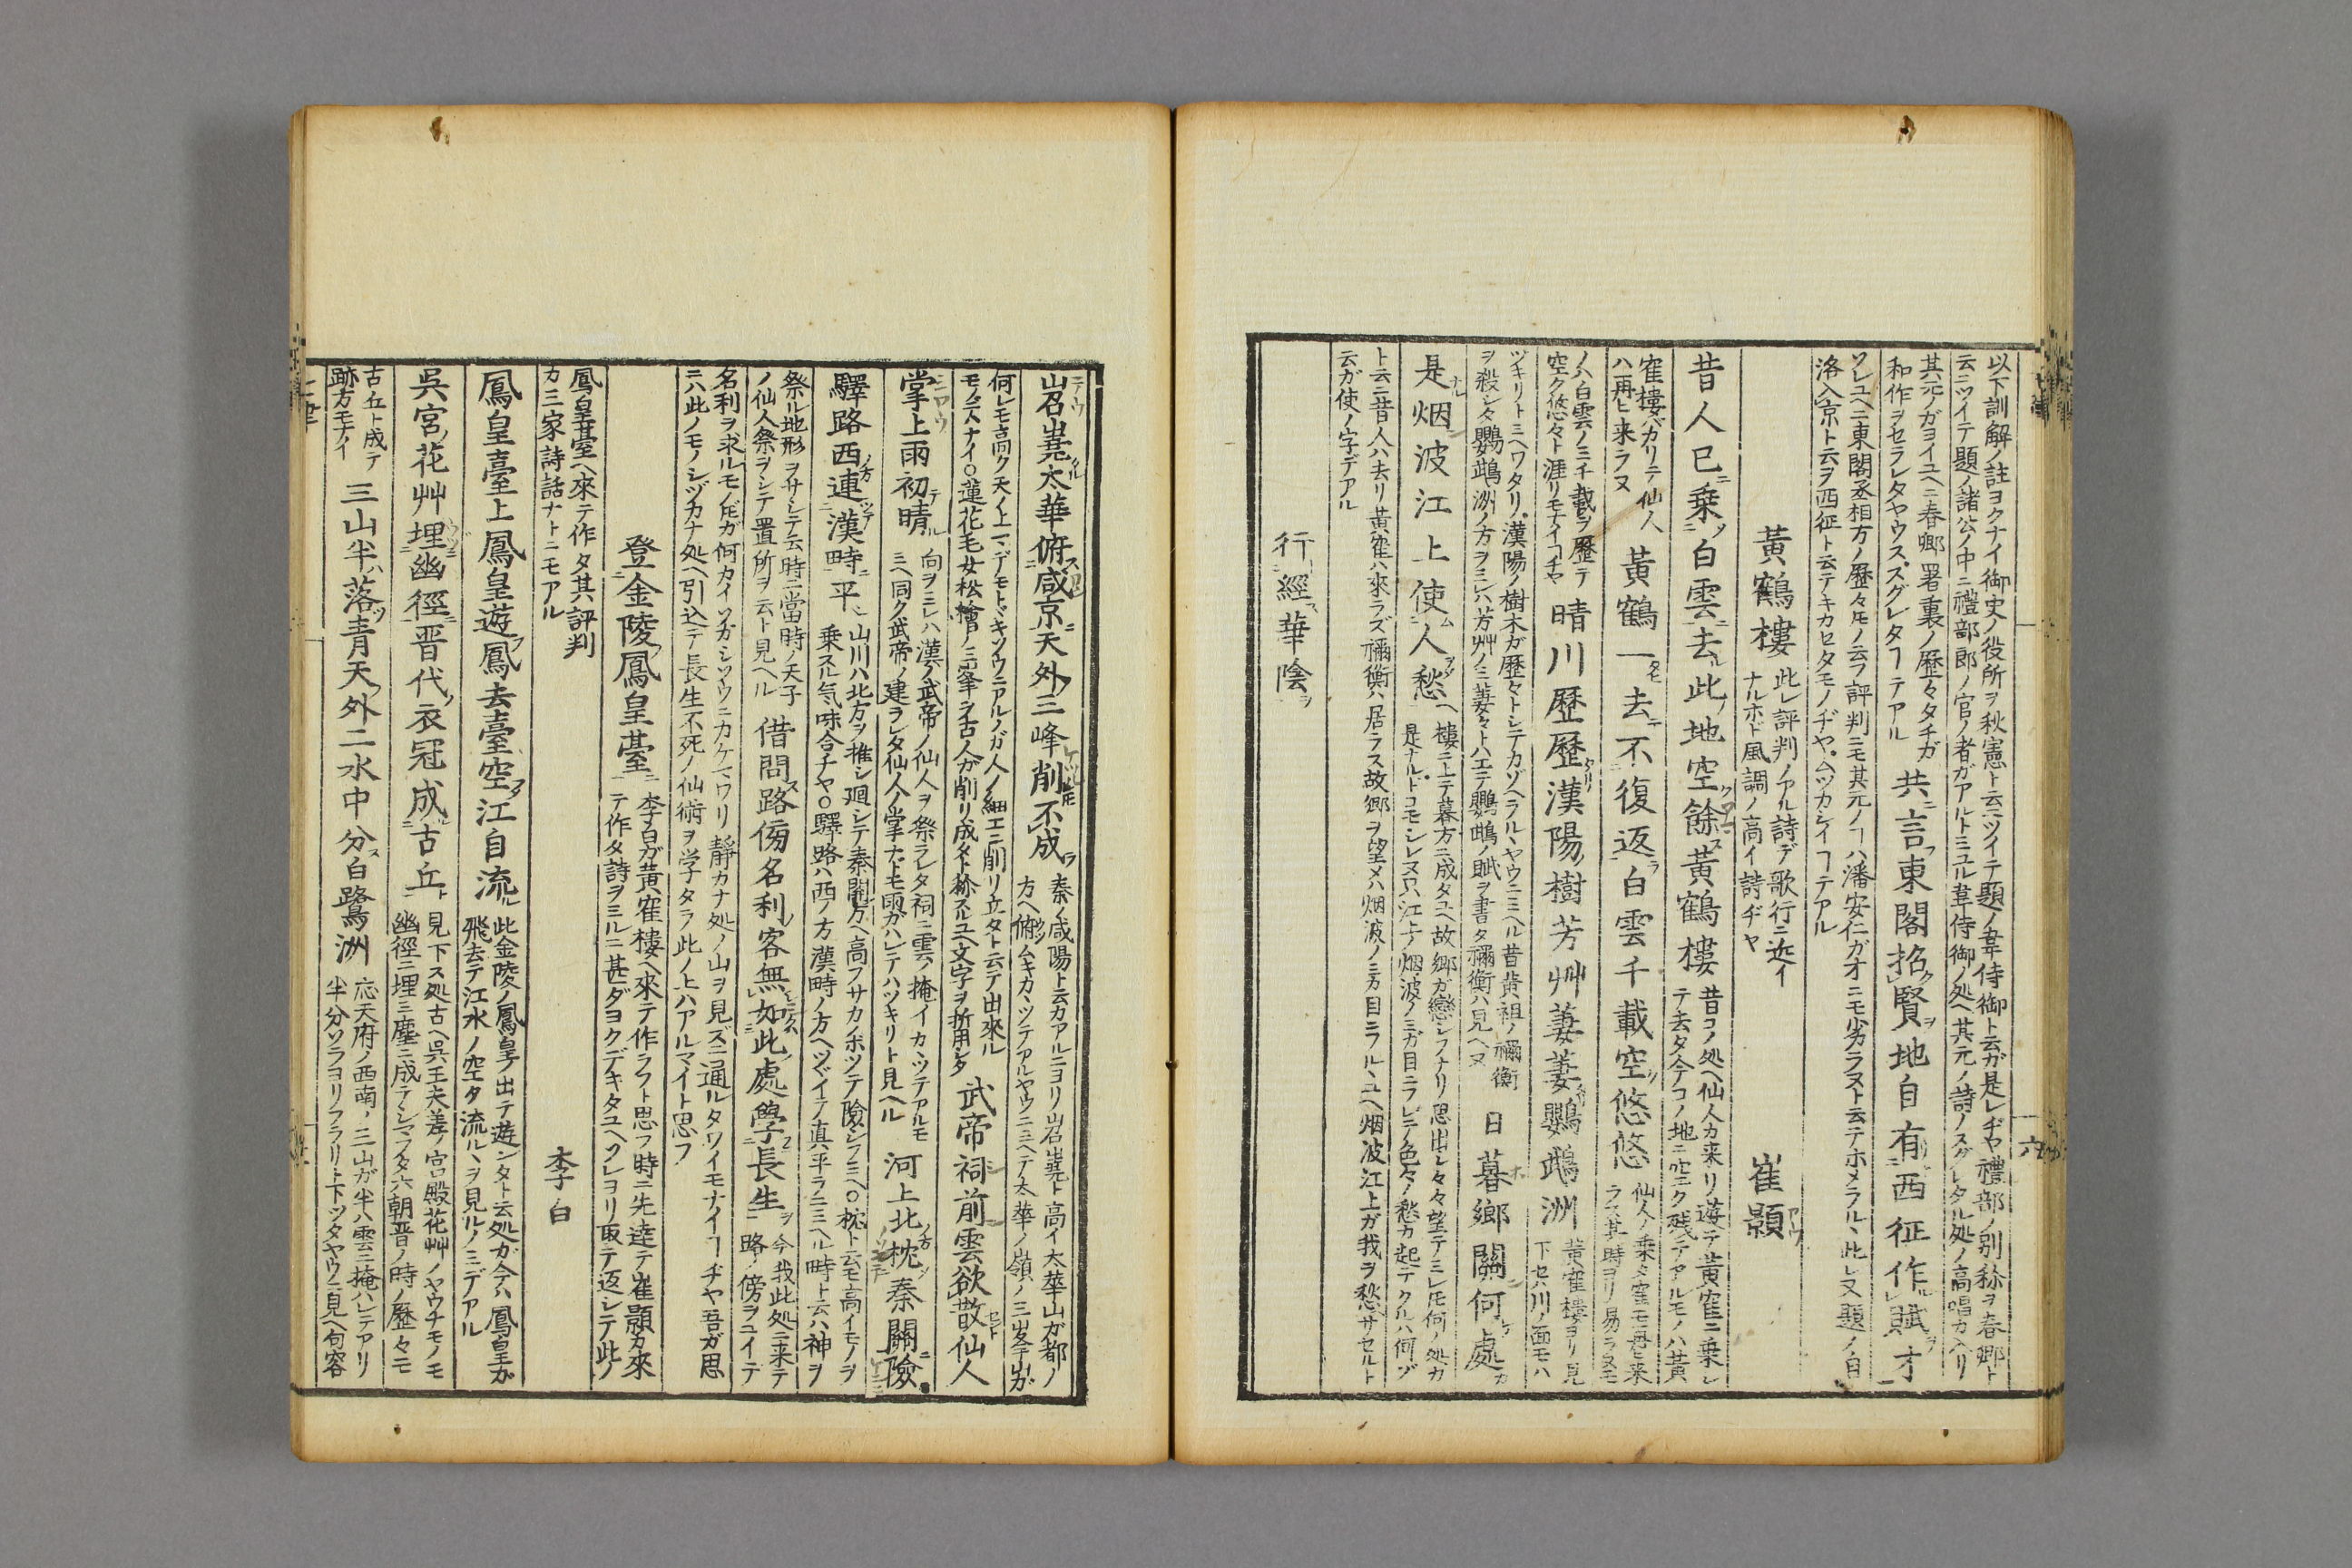 以下訓解ノ註ヨクナイ御史ノ役所ヲ秋憲ト云ツイテ題ノ韋侍御ト云ガ是レヂヤ禮部ノ別稱ヲ春卿ト
云ニツイテ題ノ諸公ノ中ニ禮部郎ノ官ノ者ガアルトミユル韋侍御ノ処ヘ其元ノ詩ノスグレタル処ノ高唱カ入リ
其元ノガヨイユヘニ春卿署裏ノ歴々タチガ
和作ヲセラレタヤウス、スグレタヿテアル
共言東閣招賢地自有西征作賦才
ソレユヘニ東閣丞相方ノ歴々𪜈ノ云フ評判ニモ其元ノヿハ潘安仁ガオニモ劣ラヌト云テホメラルヽ此レ又題ノ自
洛入京ト云ヲ西征ト云テキカセタモノヂヤ、ムツカシイヿテアル
黃鶴樓
此レ評判ノアル詩デ歌行ニ近イ
ナルホド風調ノ高イ詩ヂヤ
崔顥
昔人已乗白雲去此地空餘黃鶴樓
昔コノ処ヘ仙人カ来リ遊テ黃寉ニ乗レ
テ去タ今テコノ地ニ空ク残テアルモノハ黃
寉樓バカリテ仙人
ハ再ヒ来ラヌ
黃鶴一去不復返白雲千載空悠悠
仙人ノ乗タ寉モ再ヒ来
ラス其時ヨリ易ラヌモ
ノハ白雲ノミ千載ヲ歴テ
空ク悠々ト涯リモナイヿチヤ
晴川歷歷漢陽樹芳艸萋萋鸚鵡洲
黃寉樓ヨリ見
下セハ川ノ面モハ
ヅキリトミヘワタリ、漢陽ノ樹木ガ歷々トシテカゾヘラルヽヤウニミヘル昔黃祖ノ禰衡
ヲ殺シタ鸚鵡洲ノ方ヲミレハ芳艸ノミ萋々トハエテ鸚鵡ノ賦ヲ書タ禰衡ハ見ヘヌ
日暮鄉關何處
是烟波江上使人愁
樓ニ上テ暮方ニ成タユヘ故郷ガ戀シフナリ思出シ々々望テミレ𪜈何ノ処カ
是ナルトコモシレヌ只江上ノ烟波ノミガ目ニフレテ色々ノ愁カ起テクルハ何ヅ
ト云ニ昔人ハ去リ黃寉ハ來ラズ禰衡ハ居ラス故郷ヲ望メハ烟波ノミカ目ニフルヽユヘ烟波江上ガ我ヲ愁サセルト
云ガ使ノ字デアル
行經華陰
岧嶤太華俯咸京天外三峰削不成
秦ノ咸陽ト云カアルニヨリ岧嶤ト高イ太華山ガ都ノ
方ヘ俯ムキカヽツテアルヤウニミヘテ太華ノ嶺ノ三峯ガ
何レモ高ク天ノ上マデモトドキソウニアルノガ人ノ細工ニ削リ立タト云テ出來ル
モノテハナイ○蓮花毛女松檜ノ三峯ヲ古人ガ削リ成タト稱スルユヘ文字ヲ折用シタ
武帝祠前雲欲散仙人
掌上雨初晴
向ヲミレハ漢ノ武帝ノ仙人ヲ祭ラレタ祠ニ雲ノ掩イカヽツテアルモ
ミヘ同ク武帝ノ建ラレタ仙人ノ掌ナトモ雨ガハレテハツキリト見ヘル
河上北枕秦關險
驛路西連漢畤平
山川ハ北方ヲ推シ廻レテ秦關ノ方ヘ高フサカホツテ險シフミヘ○枕ト云モ高イモノヲ
乗スル気味合チヤ○驛路ハ西ノ方漢時ノ方ヘツヾイテ真平ラニミヘル畤ト云ハ神ヲ
祭ル地形ヲサシテ云時ニ當時ノ天子
ノ仙人祭ヲシテ置所ヲ云ト見ヘル
借問路傍名利客無如此處學長生
今我此処ニ来テ
路ノ傍ヲユイテ
名利ヲ求ルモノ𪜈ガ何カイソガシソウニカケマワリ靜カナ処ノ山ヲ見ズニ通ルタワイモナイヿヂヤ吾ガ思
ニハ此ノモノシヅカナ処ヘ引込テ長生不死ノ仙術ヲ学タラ此ノ上ハアルマイト思フ
登金陵鳳皇臺
李白ガ黃寉樓ヘ來テ作ラフト思フ時ニ先達テ崔顥カ來
テ作タ詩ヲミルニ甚ダヨクデキタユヘソレヨリ取テ返シテ此ノ
鳳皇臺ヘ來テ作タ其評判
カ三家詩話ナトニモアル
李白
鳳皇臺上鳳皇遊鳳去臺空江自流
此金陵ノ鳳皇ノ出テ遊ンタト云処ガ今ハ鳳皇ガ
飛去テ江水ノ空タ流ルヽヲ見ルノミデアル
吳宮花艸埋幽徑晋代衣冠成古丘
見下ス処古ヘ呉王夫差ノ宮殿花艸ノヤウチモノモ
幽徑ニ埋ミ塵ニ成テシマフタ六朝晋ノ時ノ歷々モ
古丘ト成テ
跡方モナイ
三山半落青天外二水中分白鷺洲
応天府ノ西南ノ三山ガ半ハ雲ニ掩ハレテアリ
半分ソラヨリフラリト下ツタヤウニ見ヘ句容